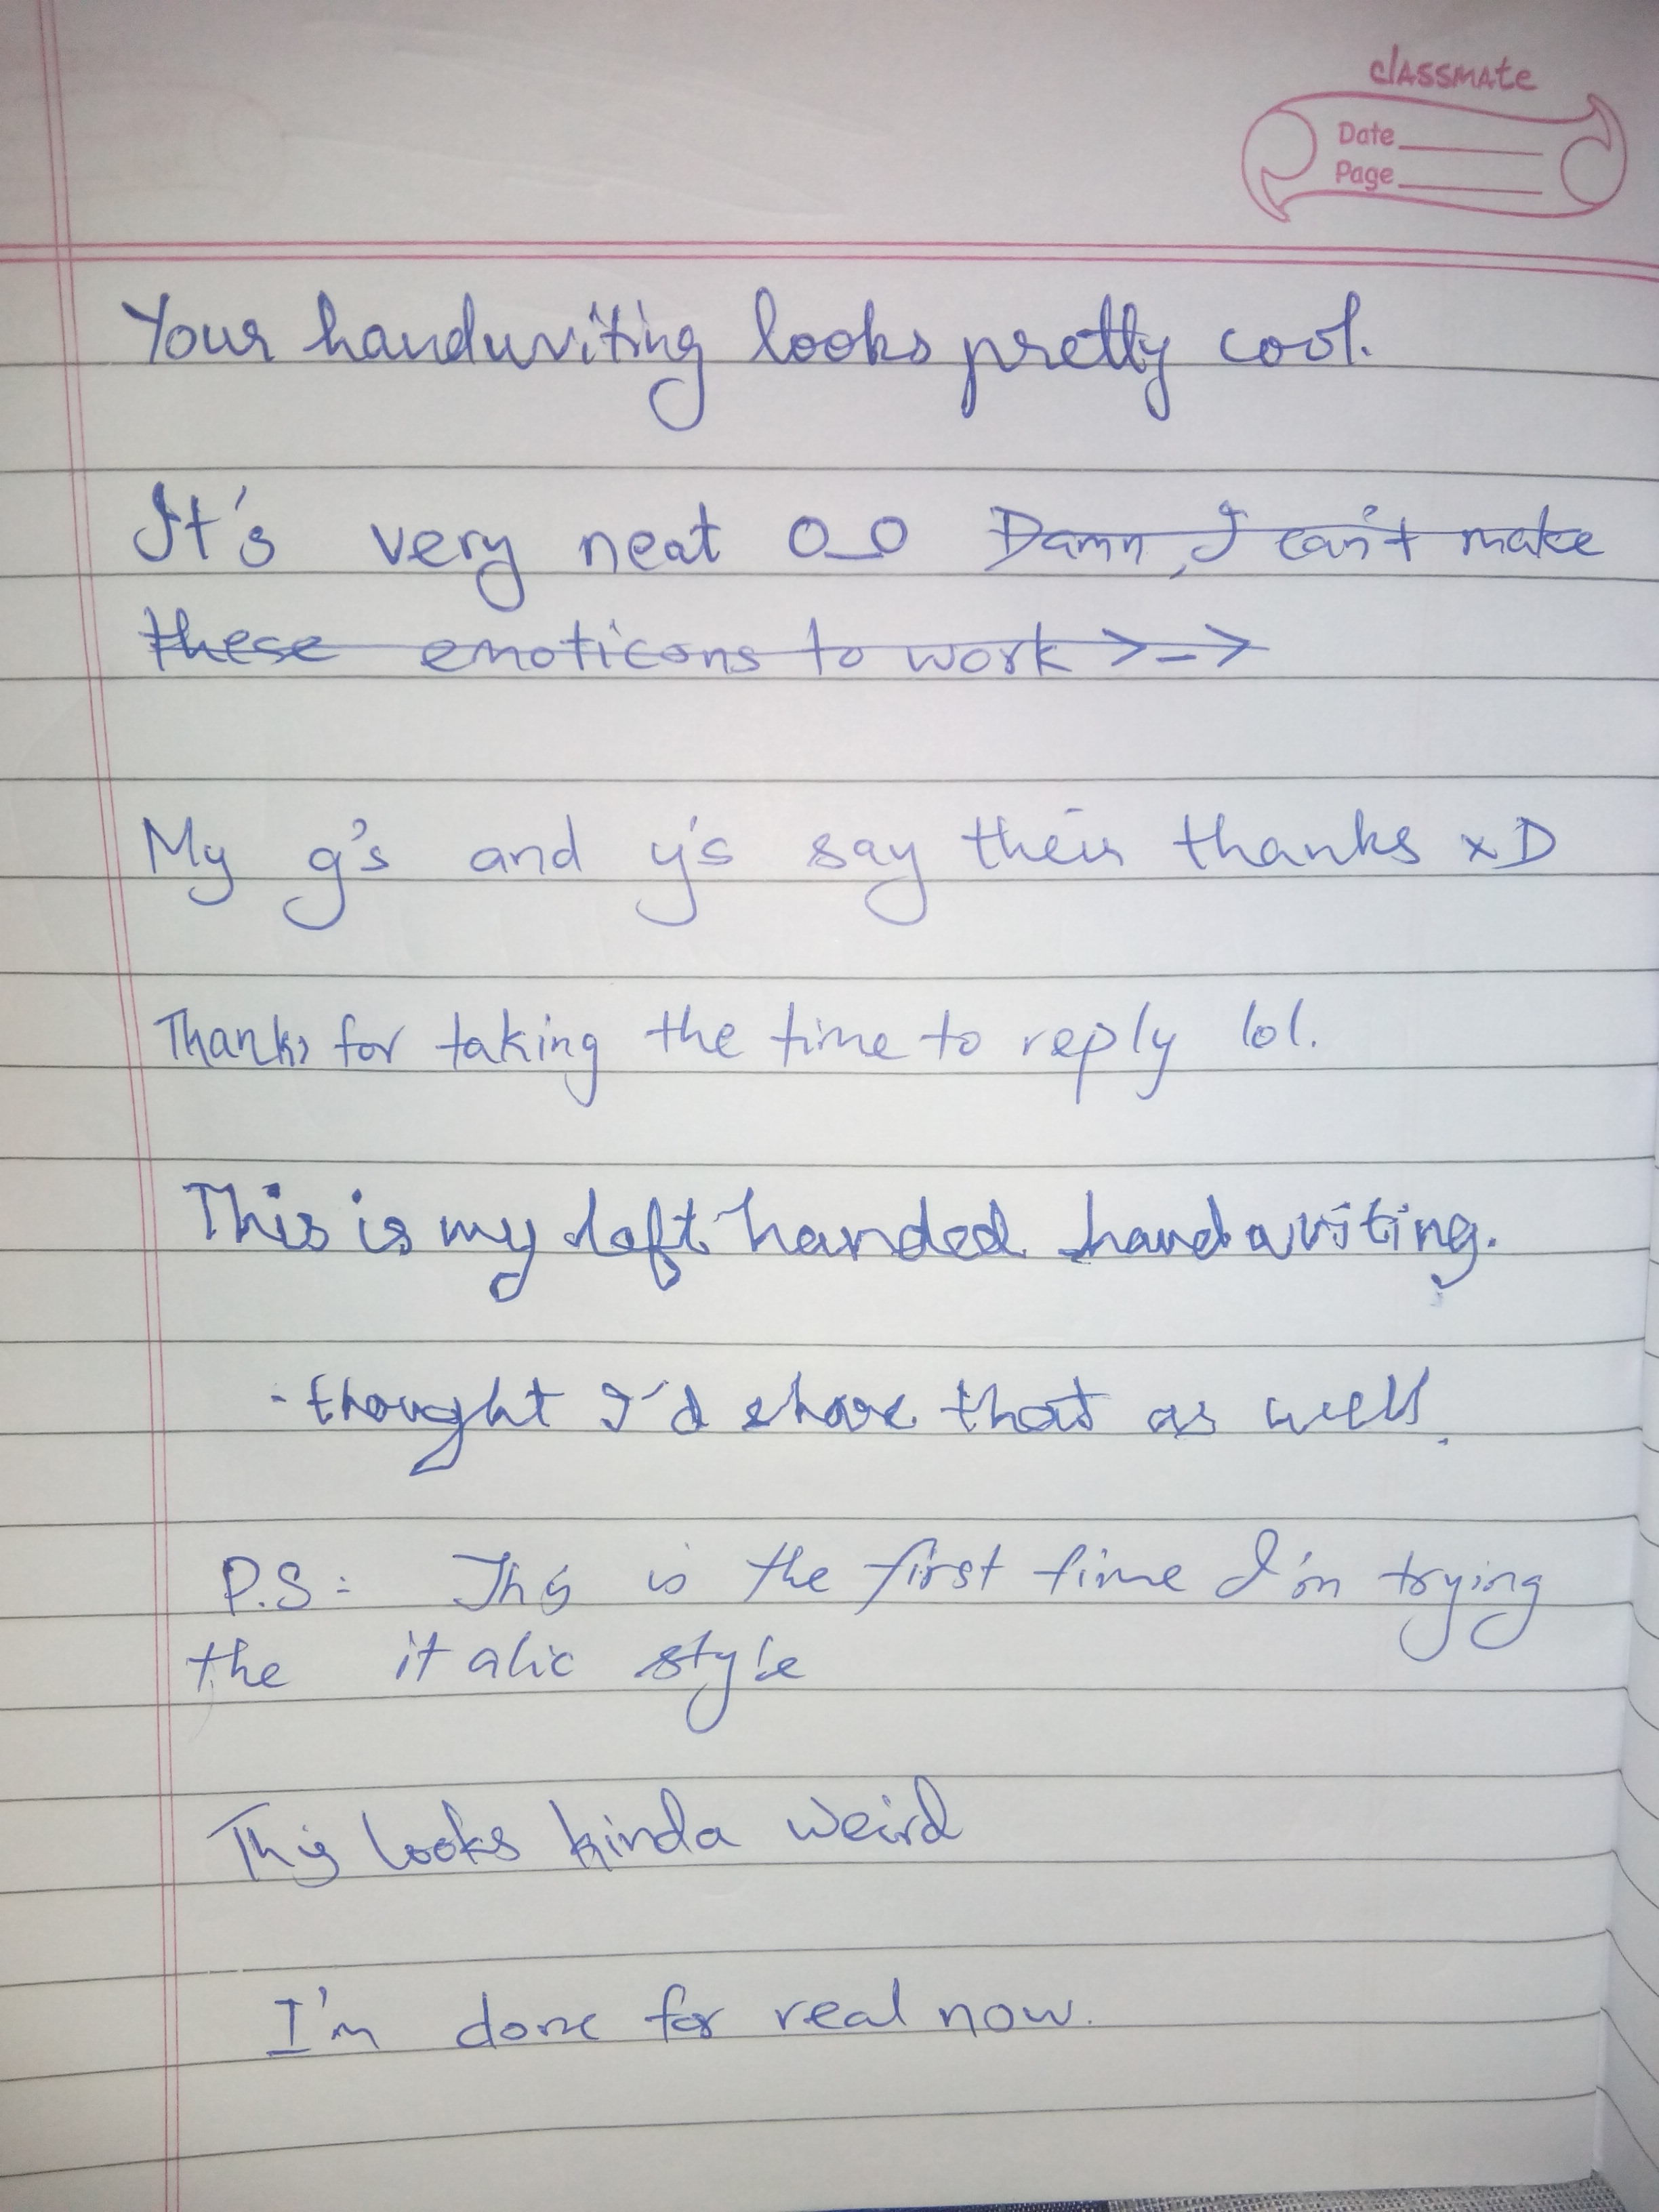 classmate
Date
Page
Your handwriting looks pretty cool.
It's very neat O_O Damn, I can't make
these emoticons to work >_>
My g's and y's say their thanks xD
Thanks for taking the time to reply lol.
This is my left handed handwriting.
- thought I'd share that as well.
P.S:- This is the first time I'm trying
the italic style
This looks kinda weird
I'm done for real now.